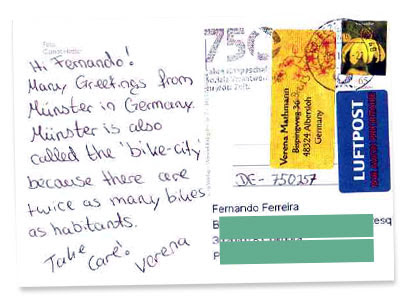 Hi Fernando!
Many Greetings from
Münster in Germany.
Münster is also
called the 'bike-city
because there are
twice as many bikes
as habitants.
Take care! Verena
750
Verena Mathmann
48324 Albersloh
Germany
65
LUFTPOST
DE - 750257
Fernando Ferreira